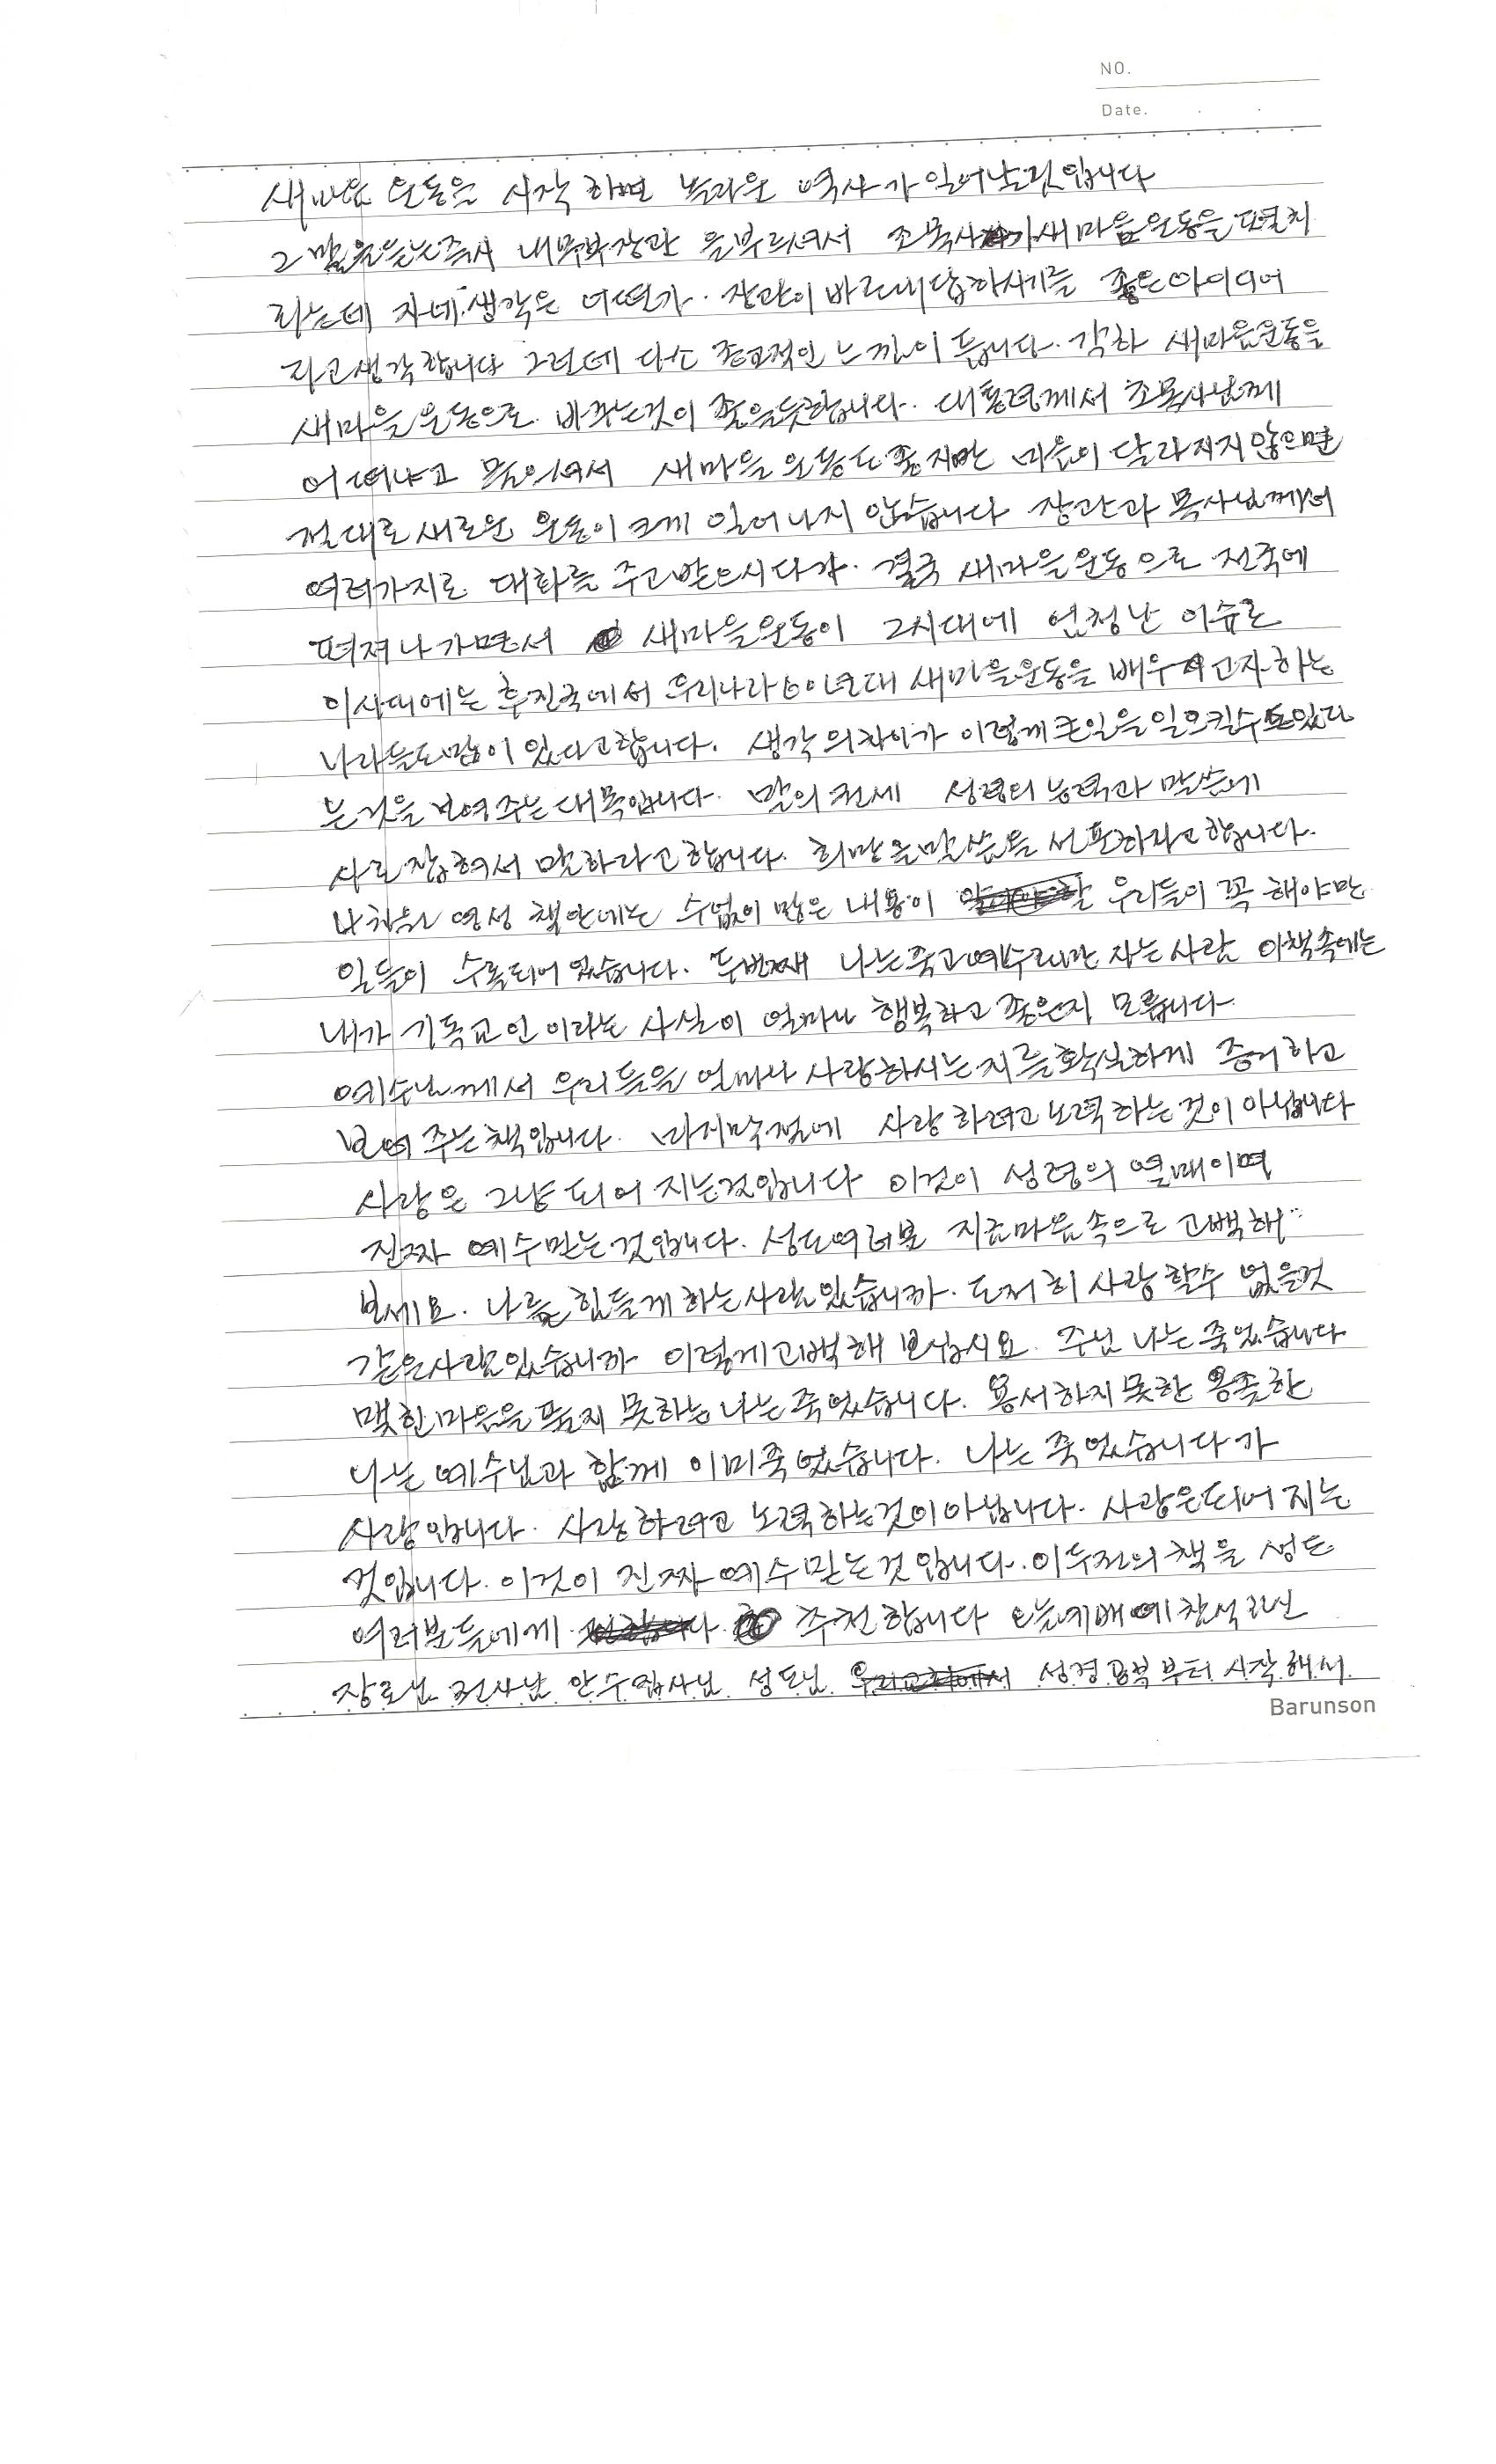 NO.
Date.
새마음 운동을 시작 하면 놀라운 역사가 일어날것입니다
그 말을듣는즉시 내무부장관 을부르셔서 조목사가새마음운동을 펼치
라는데 자네 생각은 어떤가. 장관이 바로대답하시기를 좋은아이디어
라고생각합니다 그런데 다소 종교적인 느낌이 듭니다. 각하 새마음운동을
새마을운동으로 바꾸는것이 좋을듯합니다. 대통령께서 조목사님께
어떠냐고 물으셔서 새마을운동도좋지만 마음이 달라지지않으면
절대로새로운 운동이크게 일어나지 않습니다 장관과 목사님께서
여러가지로 대화를 주고받으시다가. 결국 새마을운동으로 전국에
퍼져나가면서 새마을운동이 그시대에 엄청난 이슈로
이시대에는 후진국에서 우리나라60년대 새마을운동을 배우고자하는
나라들도많이 있다고합니다. 생각의차이가 이렇게큰일을일으킬수도있다
는것을 보여주는대목입니다. 말의 권세 성령의능력과 말씀에
사로잡혀서 말하라고합니다. 희망을말씀을 선포하라고합니다.
4차원의 영성 책안에는 수없이 많은 내용이 우리들이 꼭 해야만
일들이 수록되어있습니다. 두번째 나는죽고예수로만 사는사람 이책속에는
내가 기독교인이라는 사실이 얼마나 행복하고 좋은지 모릅니다.
예수님께서 우리들을 얼마나 사랑하시는지를확실하게 증거하고
보여주는책입니다. 마지막절에 사랑하려고노력하는것이아닙니다
사랑은 그냥되어지는것입니다 이것이 성령의 열매이며
진짜 예수믿는것입니다. 성도여러분 지금마음속으로 고백해
보세요. 나를힘들게하는사람있습니까. 도저히사랑할수 없을것
같은사람있습니까 이렇게고백해 보십시요. 주님 나는죽었습니다
맺힌마음을풀지 못하는나는죽었습니다. 용서하지못한 옹졸한
나는예수님과 함께 이미죽었습니다. 나는 죽었습니다가
사랑입니다. 사랑하려고 노력하는것이아닙니다. 사랑은되어지는
것입니다. 이것이 진짜예수믿는것입니다. 이두권의책을 성도
여러분들에게 추천합니다 오늘예배에참석하신
장로님 권사님 안수집사님 성도님 성경공부부터시작해서
Barunson